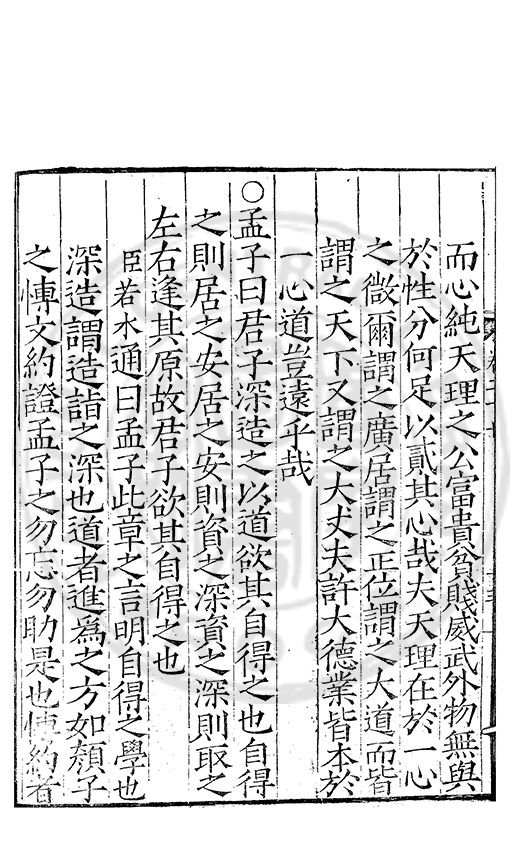 而心純天理之公富貴貧賤威武外物無與
於性分何足以貳其心哉夫天理在於一心
之微爾謂之廣居謂之正位謂之大道而皆
謂之天下又謂之大丈夫許大德業皆本於
一心道豈遠乎哉
○孟子曰君子深造之以道欲其自得之也自得
之則居之安居之安則資之深資之深則取之
左右逢其原故君子欲其自得之也
臣若水通曰孟子此章之言明自得之學也
深造謂造詣之深也道者進為之方如顏子
之博文約禮孟子之勿忘勿助是也博約者